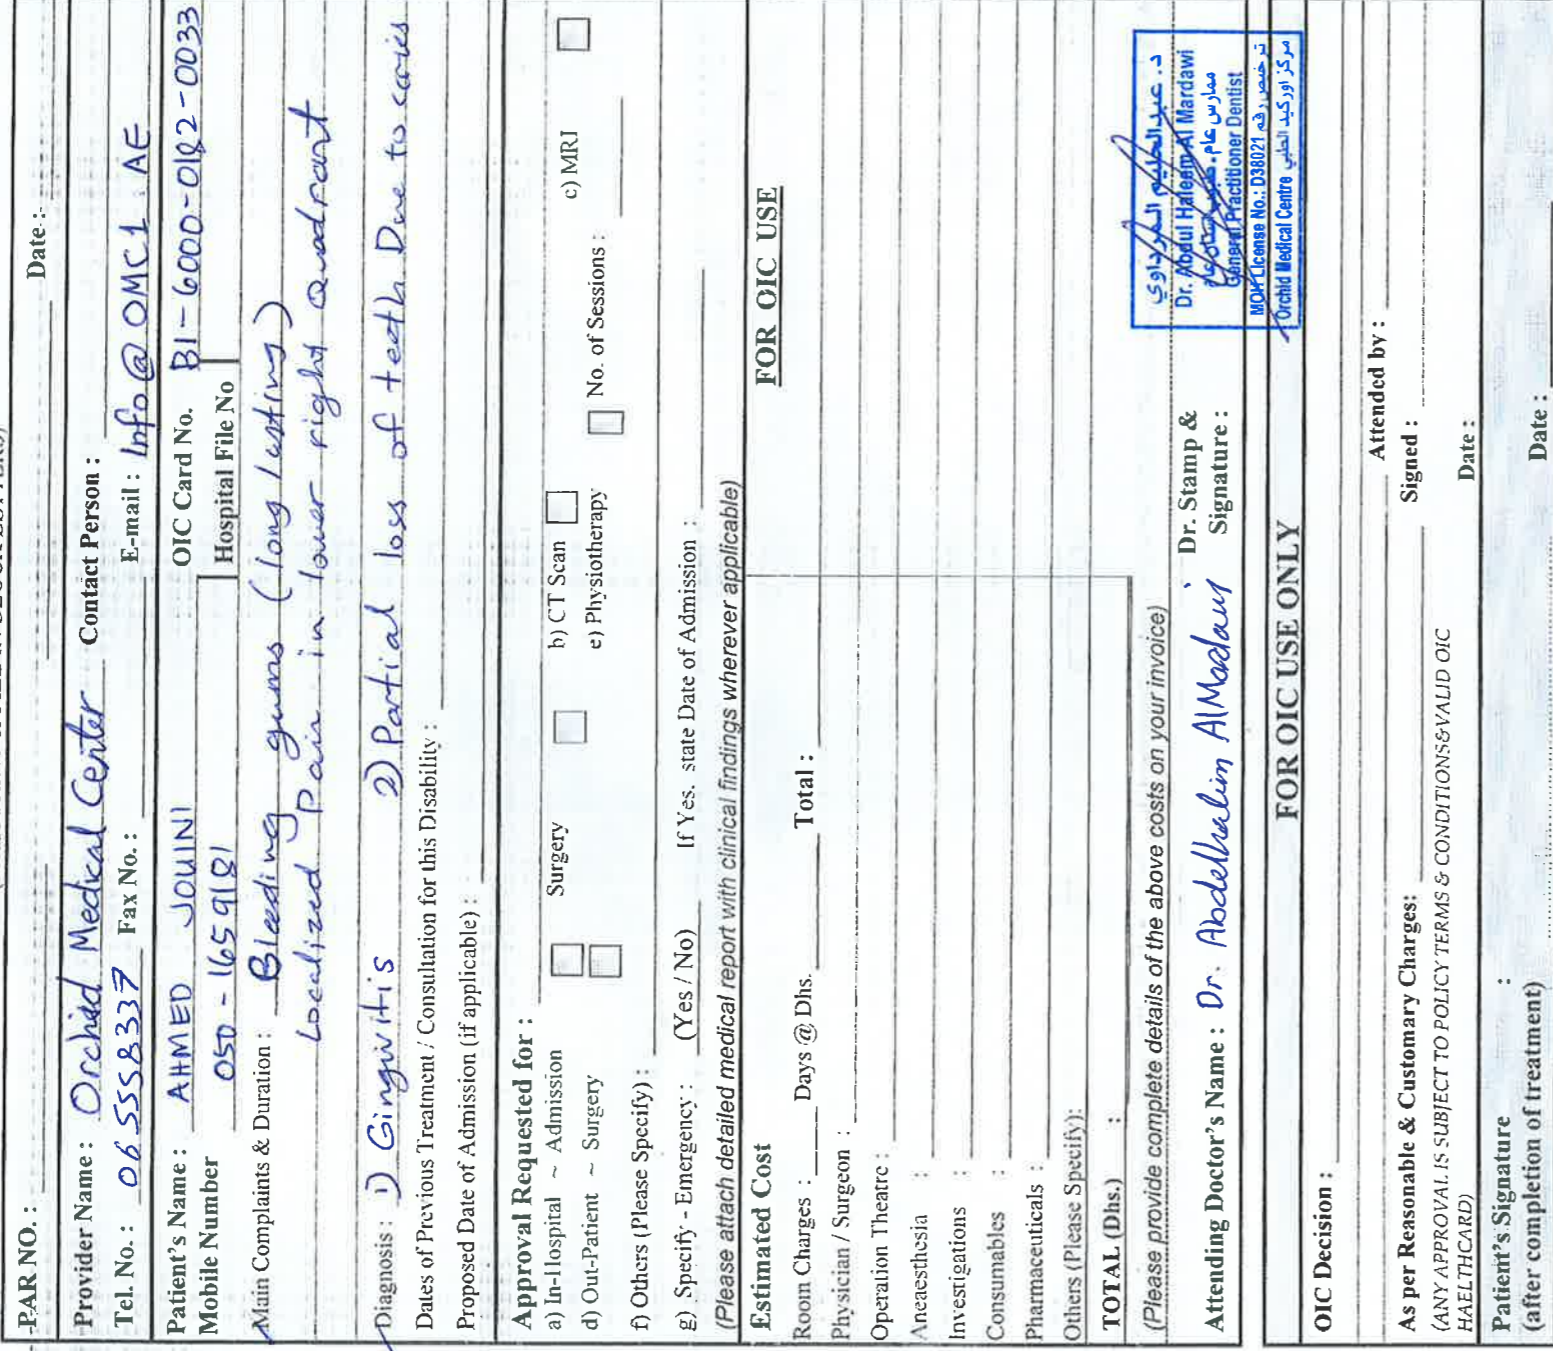 PAR NO. : Date :
Provider Name : Orchid Medical Center Contact Person :
Tel. No. : 06 5558337 Fax No. : E-mail : Info@OMC1.AE
Patient's Name : AHMED JOUINI OIC Card No. B1-6000-0182-0033
Mobile Number 050-1659181 Hospital File No
Main Complaints & Duration : Bleeding gums (long lasting)
Localized Pain in lower right quadrant
Diagnosis : 1) Gingivitis 2) Partial loss of teeth Due to caries
Dates of Previous Treatment / Consultation for this Disability :
Proposed Date of Admission (if applicable) :
Approval Requested for :
a) In-Hospital ~ Admission Surgery b) CT Scan c) MRI
d) Out-Patient ~ Surgery e) Physiotherapy No. of Sessions :
f) Others (Please Specify) :
g) Specify - Emergency : (Yes / No) If Yes, state Date of Admission :
(Please attach detailed medical report with clinical findings wherever applicable)
Estimated Cost FOR OIC USE
Room Charges : Days @ Dhs. Total :
Physician / Surgeon :
Operation Theatre :
Aneaesthesia :
Investigations :
Consumables :
Pharmaceuticals :
Others (Please Specify):
TOTAL (Dhs.) :
(Please provide complete details of the above costs on your invoice)
Attending Doctor's Name : Dr. Abdelhalim AlMardawi Dr. Stamp &
Signature :
د. عبدالحليم المرداوي
Dr. Abdul Haleem Al Mardawi
ممارس عام
General Practitioner Dentist
MOH License No.: D38021 ترخيص رقم
Orchid Medical Centre مركز اوركيد الطبي
FOR OIC USE ONLY
OIC Decision :
Attended by :
As per Reasonable & Customary Charges: Signed :
(ANY APPROVAL IS SUBJECT TO POLICY TERMS & CONDITIONS&VALID OIC
HAELTHCARD) Date :
Patient's Signature :
(after completion of treatment) Date :